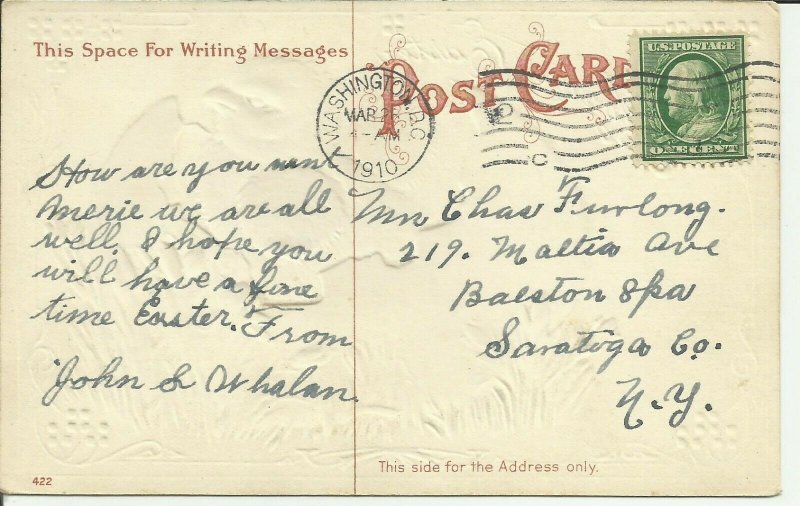 This Space For Writing Messages
POST CARD
U.S. POSTAGE
ONE CENT
WASHINGTON, D.C.
MAR 26
AM
1910
C
How are you aunt
Merie we are all
well. I hope you
will have a fine
time Easter. From
John S Whalan.
Mrs Chas Furlong.
219. Maltia Ave
Balston Spa
Saratoga Co.
N.Y.
This side for the Address only.
422